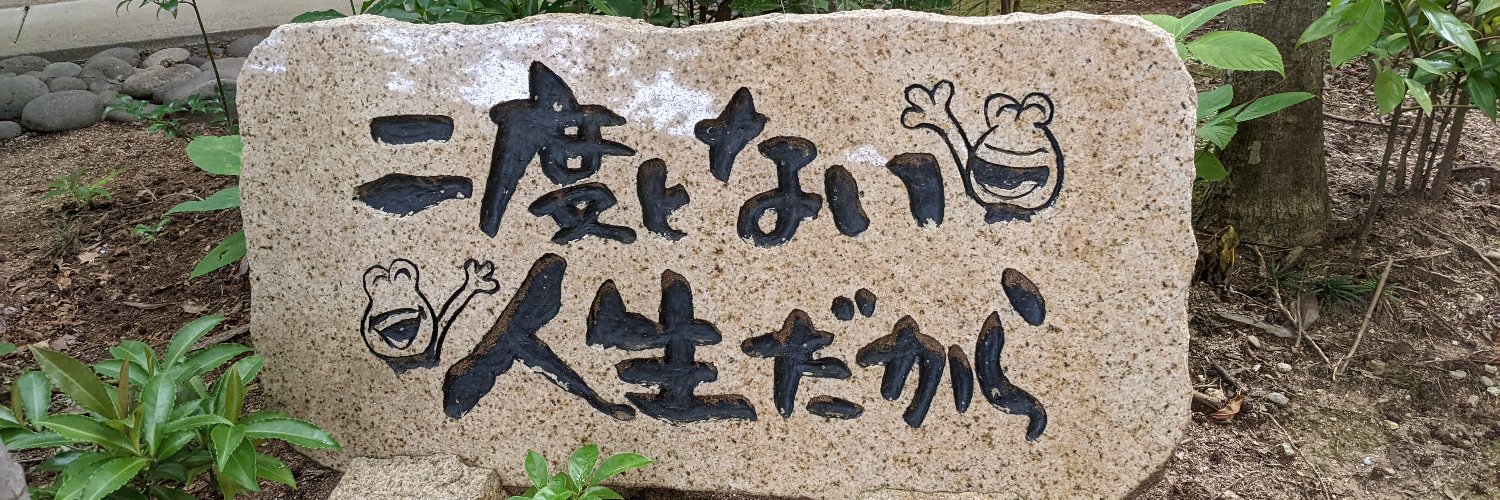 二度とない
人生だから